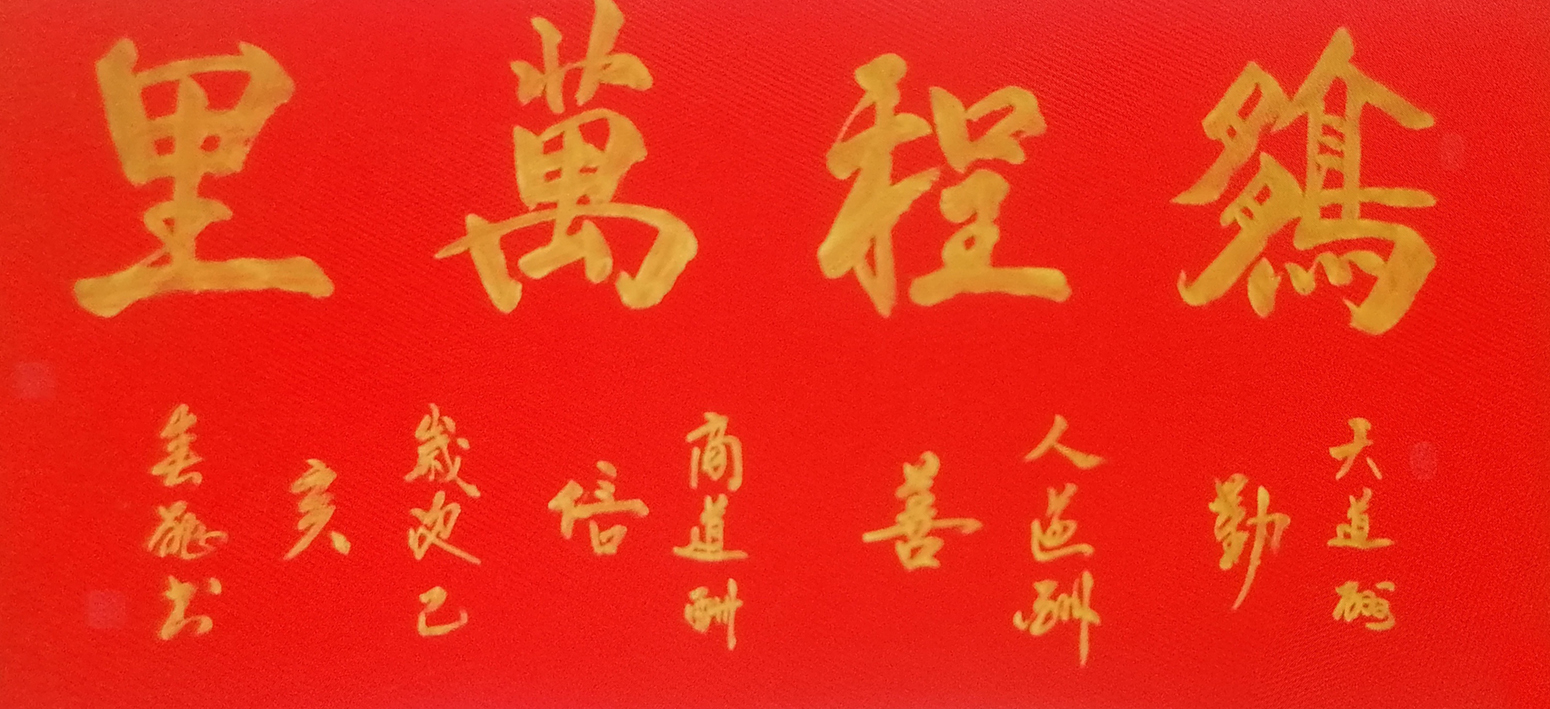 鵬程萬里
天道酬
勤
人道酬
善
商道酬
信
歲次己
亥
书